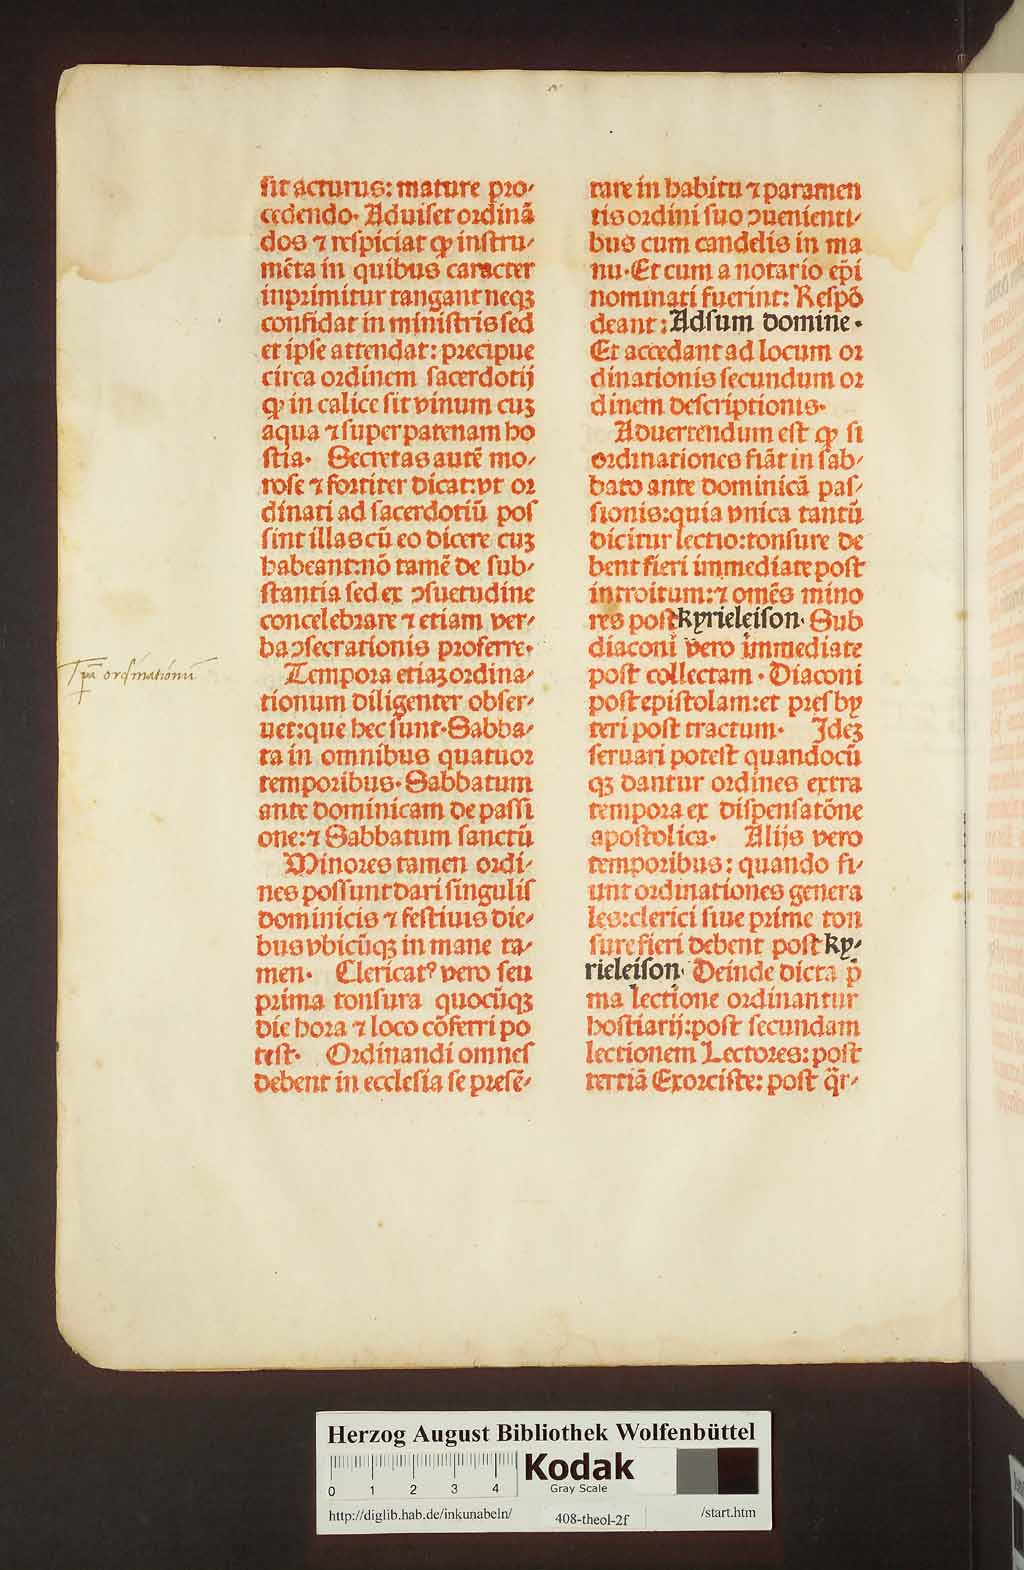 sit acturus: mature pro-
cedendo. Aduiset ordinã
dos ⁊ respiciat ꝙ instru-
mẽta in quibus caracter
inprimitur tangant neqꝫ
confidat in ministris sed
et ipse attendat: precipue
circa ordinem sacerdotij
ꝙ in calice sit vinum cuꝫ
aqua ⁊ super patenam ho
stia. Secretas autẽ mo-
rose ⁊ fortiter dicat: vt or
dinati ad sacerdotiũ pos
sint illas cũ eo dicere cuꝫ
habeant: nõ tamẽ de sub-
stantia sed ex ↄsuetudine
concelebrare ⁊ etiam ver-
ba ↄsecrationis proferre.
Tempora etiaꝫ ordina-
tionum diligenter obser-
uet: que hec sunt. Sabba-
ta in omnibus quatuor
temporibus. Sabbatum
ante dominicam de passi
one: ⁊ Sabbatum sanctũ
Minores tamen ordi-
nes possunt dari singulis
dominicis ⁊ festiuis die-
bus vbicũqꝫ in mane ta-
men. Clericatꝰ vero seu
prima tonsura quocũqꝫ
die hora ⁊ loco cõferri po
test. Ordinandi omnes
debent in ecclesia se presẽ-
Tpã ordinationũ
tare in habitu ⁊ paramen
tis ordini suo ↄuenienti-
bus cum candelis in ma
nu. Et cum a notario ep̃i
nominati fuerint: Respõ
deant: Adsum domine.
Et accedant ad locum or
dinationis secundum or
dinem descriptionis.
Aduertendum est ꝙ si
ordinationes fiãt in sab-
bato ante dominicã pas-
sionis: quia vnica tantũ
dicitur lectio: tonsure de
bent fieri immediate post
introitum: ⁊ omẽs mino
res post kyrieleison. Sub
diaconi vero immediate
post collectam. Diaconi
post epistolam: et presby
teri post tractum. Ideꝫ
seruari potest quandocũ
qꝫ dantur ordines extra
tempora ex dispensatõne
apostolica. Alijs vero
temporibus: quando fi-
unt ordinationes genera
les: clerici siue prime ton
sure fieri debent post ky-
rieleison. Deinde dicta p̃
ma lectione ordinantur
hostiarij: post secundam
lectionem Lectores: post
tertiã Exorciste: post q̃r-
Herzog August Bibliothek Wolfenbüttel
0 1 2 3 4
Kodak
Gray Scale
http://diglib.hab.de/inkunabeln/ 408-theol-2f /start.htm